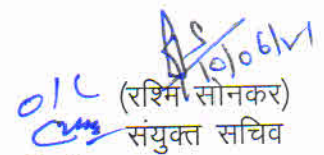 10/06/21
O/C (रश्मि सोनकर)
संयुक्त सचिव